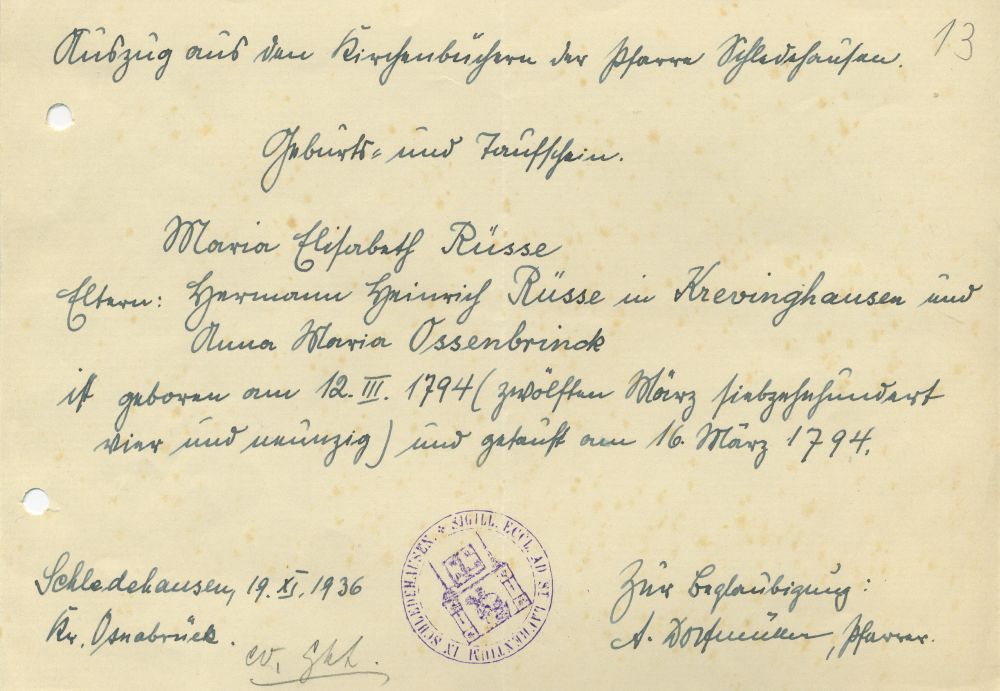 Auszug aus den Kirchenbüchern der Pfarre Schledehausen.
13
Geburts- und Taufschein.
Maria Elisabeth Rüsse
Eltern: Hermann Heinrich Rüsse in Krevinghausen und
Anna Maria Ossenbrinck
ist geboren am 12. III. 1794 (zwölften März siebzehnhundert
vier und neunzig) und getauft am 16. März 1794.
Schledehausen, 19. XI. 1936
Kr. Osnabrück.
SIGILL. ECCL. AD ST. LAURENTIUM IN SCHLEDEHAUSEN.
Zur Beglaubigung:
A. Dortmüller, Pfarrer.